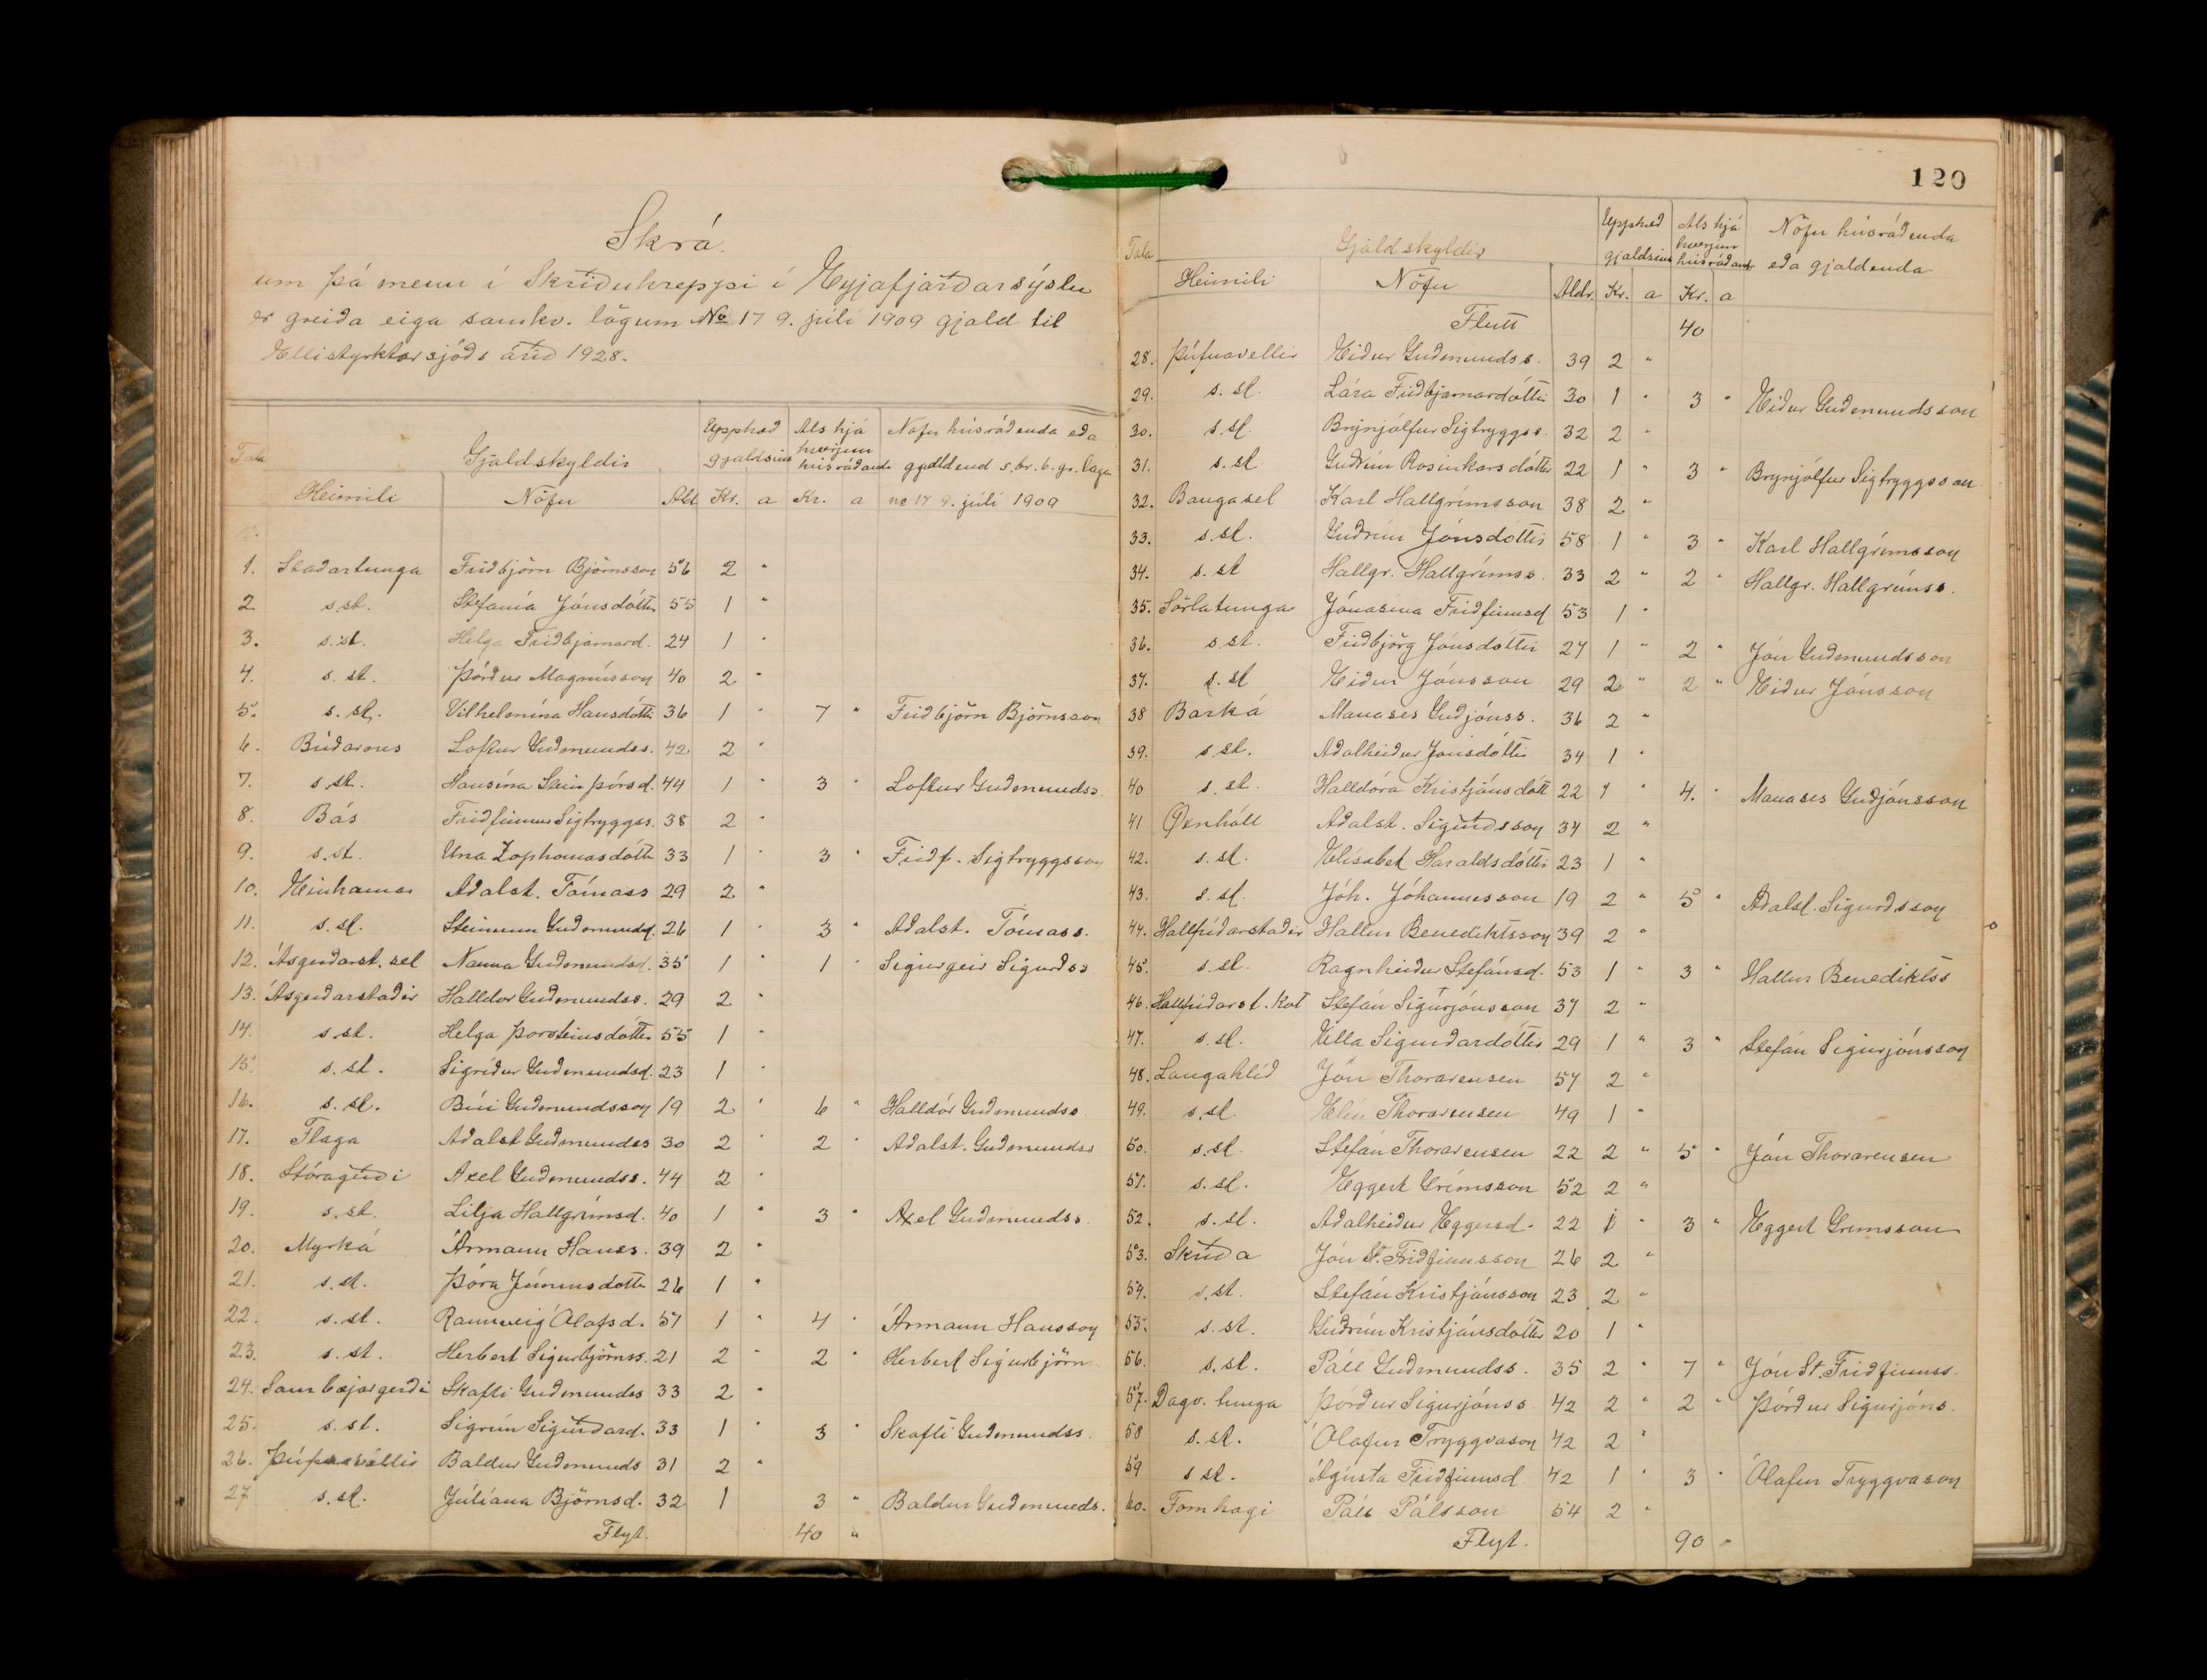 Skrá.
um þá menn í Skriðuhreppi í Eyjafjarðarsýslu
er greiða eiga samkv. lögum No 17 9. júlí 1909 gjald til
Ellistyrktarsjóðs árið 1928.
Tala Gjaldskyldir Upphæð gjaldsins Als hjá hverjum húsráðanda Nöfn húsráðenda eða gjaldend s.br. 6. gr. laga
Heimili Nöfn Ald Kr. a Kr. a no 17 9. júlí 1909
1. Staðartunga Friðbjörn Björnsson 56 2 "
2 s.st. Stefanía Jónsdóttir 55 1 "
3. s.st. Helga Friðbjarnard. 24 1 "
4. s. st. Þórður Magnússon 40 2 "
5. s. st. Vilhelmína Hansdóttir 36 1 " 7 " Friðbjörn Björnsson
6. Búðarnes Loftur Guðmundss. 42 2 "
7. s st. Hansína Steinþórsd. 44 1 " 3 " Loftur Guðmundss.
8. Bás Friðfinnur Sigtryggss. 38 2 "
9. s.st. Una Zophoníasdóttir 33 1 " 3 " Friðf. Sigtryggsson
10. Einhamar Aðalst. Tómass 29 2 "
11. s. st. Steinunn Guðmundsd. 26 1 " 3 " Aðalst. Tómass.
12. Ásgerðarst. sel Nanna Guðmundsd. 35 1 " 1 " Sigurgeir Sigurðss
13. Ásgerðarstaðir Halldor Guðmundss. 29 2 "
14. s.st. Helga Þorsteinsdóttir 55 1 "
15. s. st. Sigríður Guðmundsd. 23 1 "
16. s. st. Búi Guðmundsson 19 2 " 6 " Halldór Guðmundss
17. Flaga Aðalst Guðmundss 30 2 " 2 " Aðalst. Guðmundss
18. Stóragerði Axel Guðmundss. 44 2 "
19. s. st. Lilja Hallgrímsd. 40 1 " 3 " Axel Guðmundss.
20. Myrká Ármann Hanss. 39 2 "
21. s. st. Þóra Júníusdóttir 26 1 "
22. s. st. Rannveig Ólafsd. 57 1 " 4 " Ármann Hansson
23. s. st. Herbert Sigurbjörnss. 21 2 " 2 " Herbert Sigurbjörn
24. Saurbæjargerði Skafti Guðmundss 33 2 "
25. s. st. Sigrún Sigurðard. 33 1 " 3 " Skafti Guðmundss.
26. Þúfnavellir Baldur Guðmunds 31 2 "
27 s. st. Júlíana Björnsd. 32 1 3 " Baldur Guðmunds.
Flyt. 40 "
120
Tala Gjaldskyldir Upphæð gjaldsins Als hjá hverjum húsráðanda Nöfn húsráðenda eða gjaldenda
Heimili Nöfn Aldr. Kr. a Kr. a
Flutt 40
28. Þúfnavellir Eiður Guðmundss. 39 2 "
29. s. st. Lára Friðbjarnardóttir 30 1 " 3 " Eiður Guðmundsson
30. s. st. Brynjólfur Sigtryggss. 32 2 "
31. s. st. Guðrún Rosinkarsdóttir 22 1 " 3 " Brynjólfur Sigtryggsson
32. Baugasel Karl Hallgrímsson 38 2 "
33. s. st. Guðrún Jónsdóttir 58 1 " 3 " Karl Hallgrímsson
34. s. st Hallgr. Hallgrímss. 33 2 " 2 " Hallgr. Hallgrímss.
35. Sörlatunga Jónasína Friðfinnsd 53 1 "
36. s. st. Friðbjörg Jónsdóttir 27 1 " 2 " Jón Guðmundsson
37. s. st Eiður Jónsson 29 2 " 2 " Eiður Jónsson
38 Barká Manases Guðjónss. 36 2 "
39. s st. Aðalheiður Jónsdóttir 34 1 "
40 s. st. Halldóra Kristjánsdótt 22 1 " 4. " Manases Guðjónsson
41 Öxnhóll Aðalst. Sigurðsson 34 2 "
42. s. st. Elísabet Haraldsdóttir 23 1 "
43. s. st. Jóh. Jóhannesson 19 2 " 5 " Aðalst. Sigurðsson
44. Hallfríðarstaðir Hallur Benediktsson 39 2 "
45. s. st. Ragnheiður Stefánsd. 53 1 " 3 " Hallur Benediktss
46. Hallfríðarst. kot Stefán Sigurjónsson 37 2 "
47. s. st. Ella Sigurðardóttir 29 1 " 3 " Stefán Sigurjónsson
48. Langahlíð Jón Thorarensen 57 2 "
49. s. st. Elín Thorarensen 49 1 "
50. s. st. Stefán Thorarensen 22 2 " 5 " Jón Thorarensen
51. s. st. Eggert Grímsson 52 2 "
52. s. st. Aðalheiður Eggersd. 22 1 " 3 " Eggert Grímsson
53. Skriða Jón St. Friðfinnsson 26 2 "
54. s. st. Stefán Kristjánsson 23 2 "
55. s. st. Guðrún Kristjánsdóttir 20 1 "
56. s. st. Páll Guðmundss. 35 2 " 7 " Jón St. Friðfinnss.
57. Dagv. tunga Þórður Sigurjónss 42 2 " 2 " Þórður Sigurjóns.
58 s. st. Ólafur Tryggvason 42 2 "
59 s st. Ágústa Friðfinnsd. 42 1 " 3 " Ólafur Tryggvason
60. Fornhagi Páll Pálsson 54 2 "
Flyt. 90 "